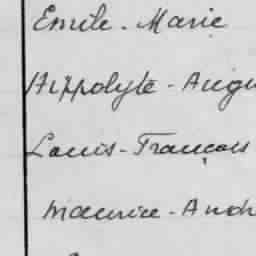 Emile-Marie
Hippolyte-Augu
Louis-François
Maurice-Andr